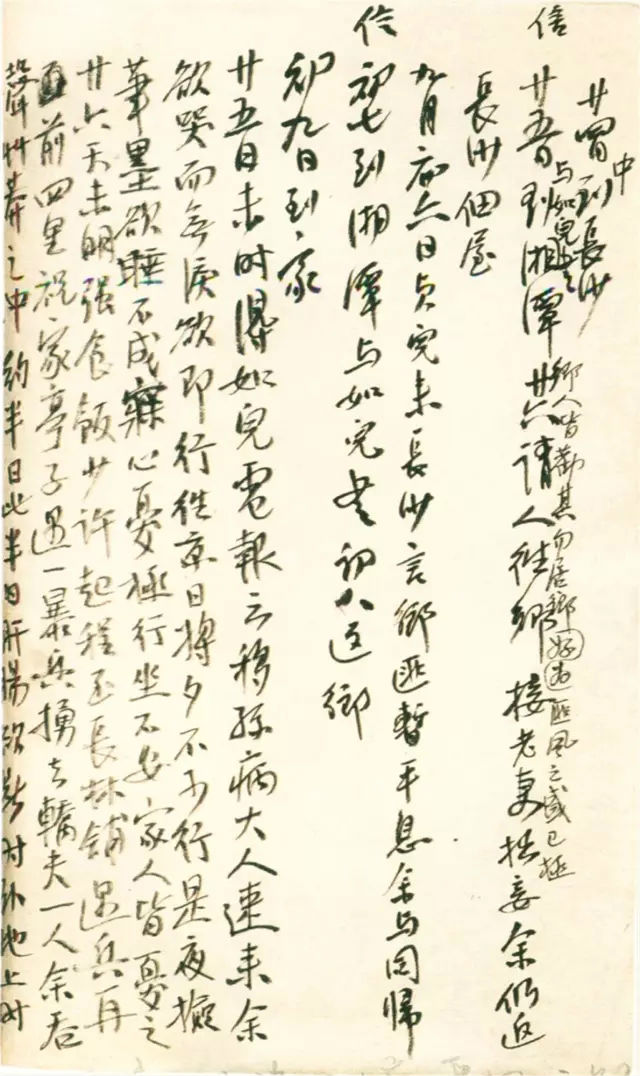 廿四到長沙
中
與如兒
鄉人皆勸其勿居鄉
匪風之盛已極
信
廿五日到湘潭廿六請人往鄉接老妻拙妾余仍返
長沙佃屋
九月初六日貞兒來長沙言鄉匪暫平息余與同歸
初七到湘潭與如兒 初八返鄉
初九日到家
廿五日未時得如兒電報云移孫病大人速來余
欲哭而無淚欲即行往京日將夕不可行是夜擬
筆墨欲睡不成寐心憂極行坐不安家人皆憂之
廿六天未明强食飯少許起程至長林鋪遇兵再
前四里祝家亭子遇一暴兵捅去轎夫一人余吞
聲 之中約半日此半日肝腸欲斷對 地上